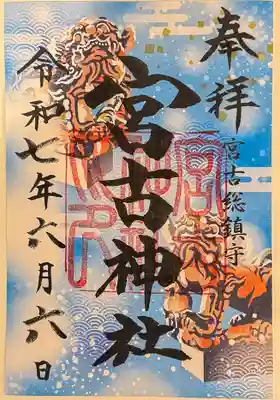 奉拝
宮古総鎮守
宮古神社
令和七年六月六日